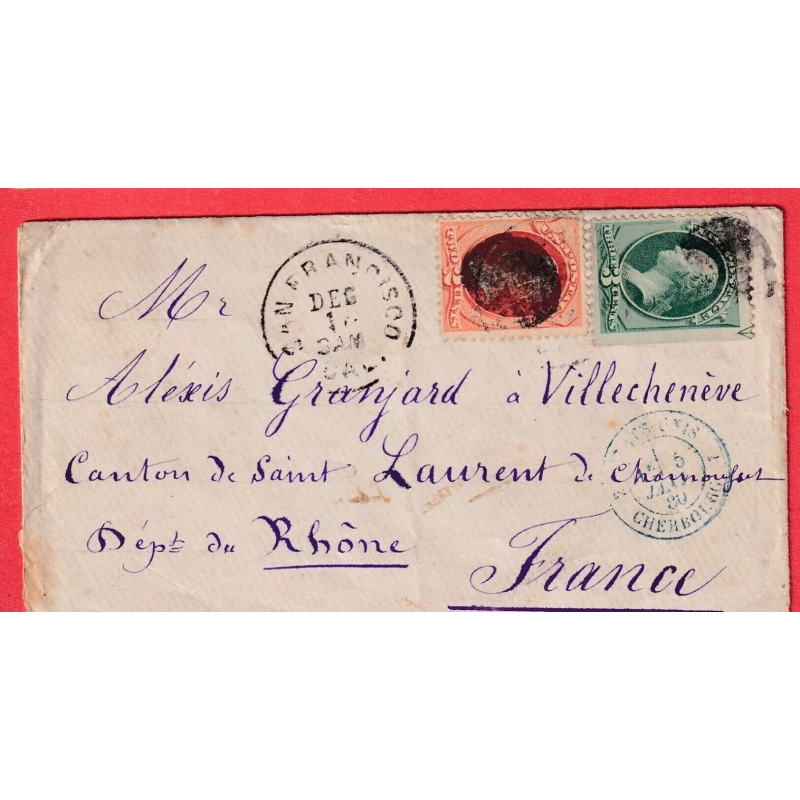 SAN FRANCISCO
DEC
3AM
CAL.
Mr
Aléxis Granjard à Villechenève
Canton de Saint Laurent de Chamousset
Dépt du Rhône
France
5
JANV
80
CHERBOURG